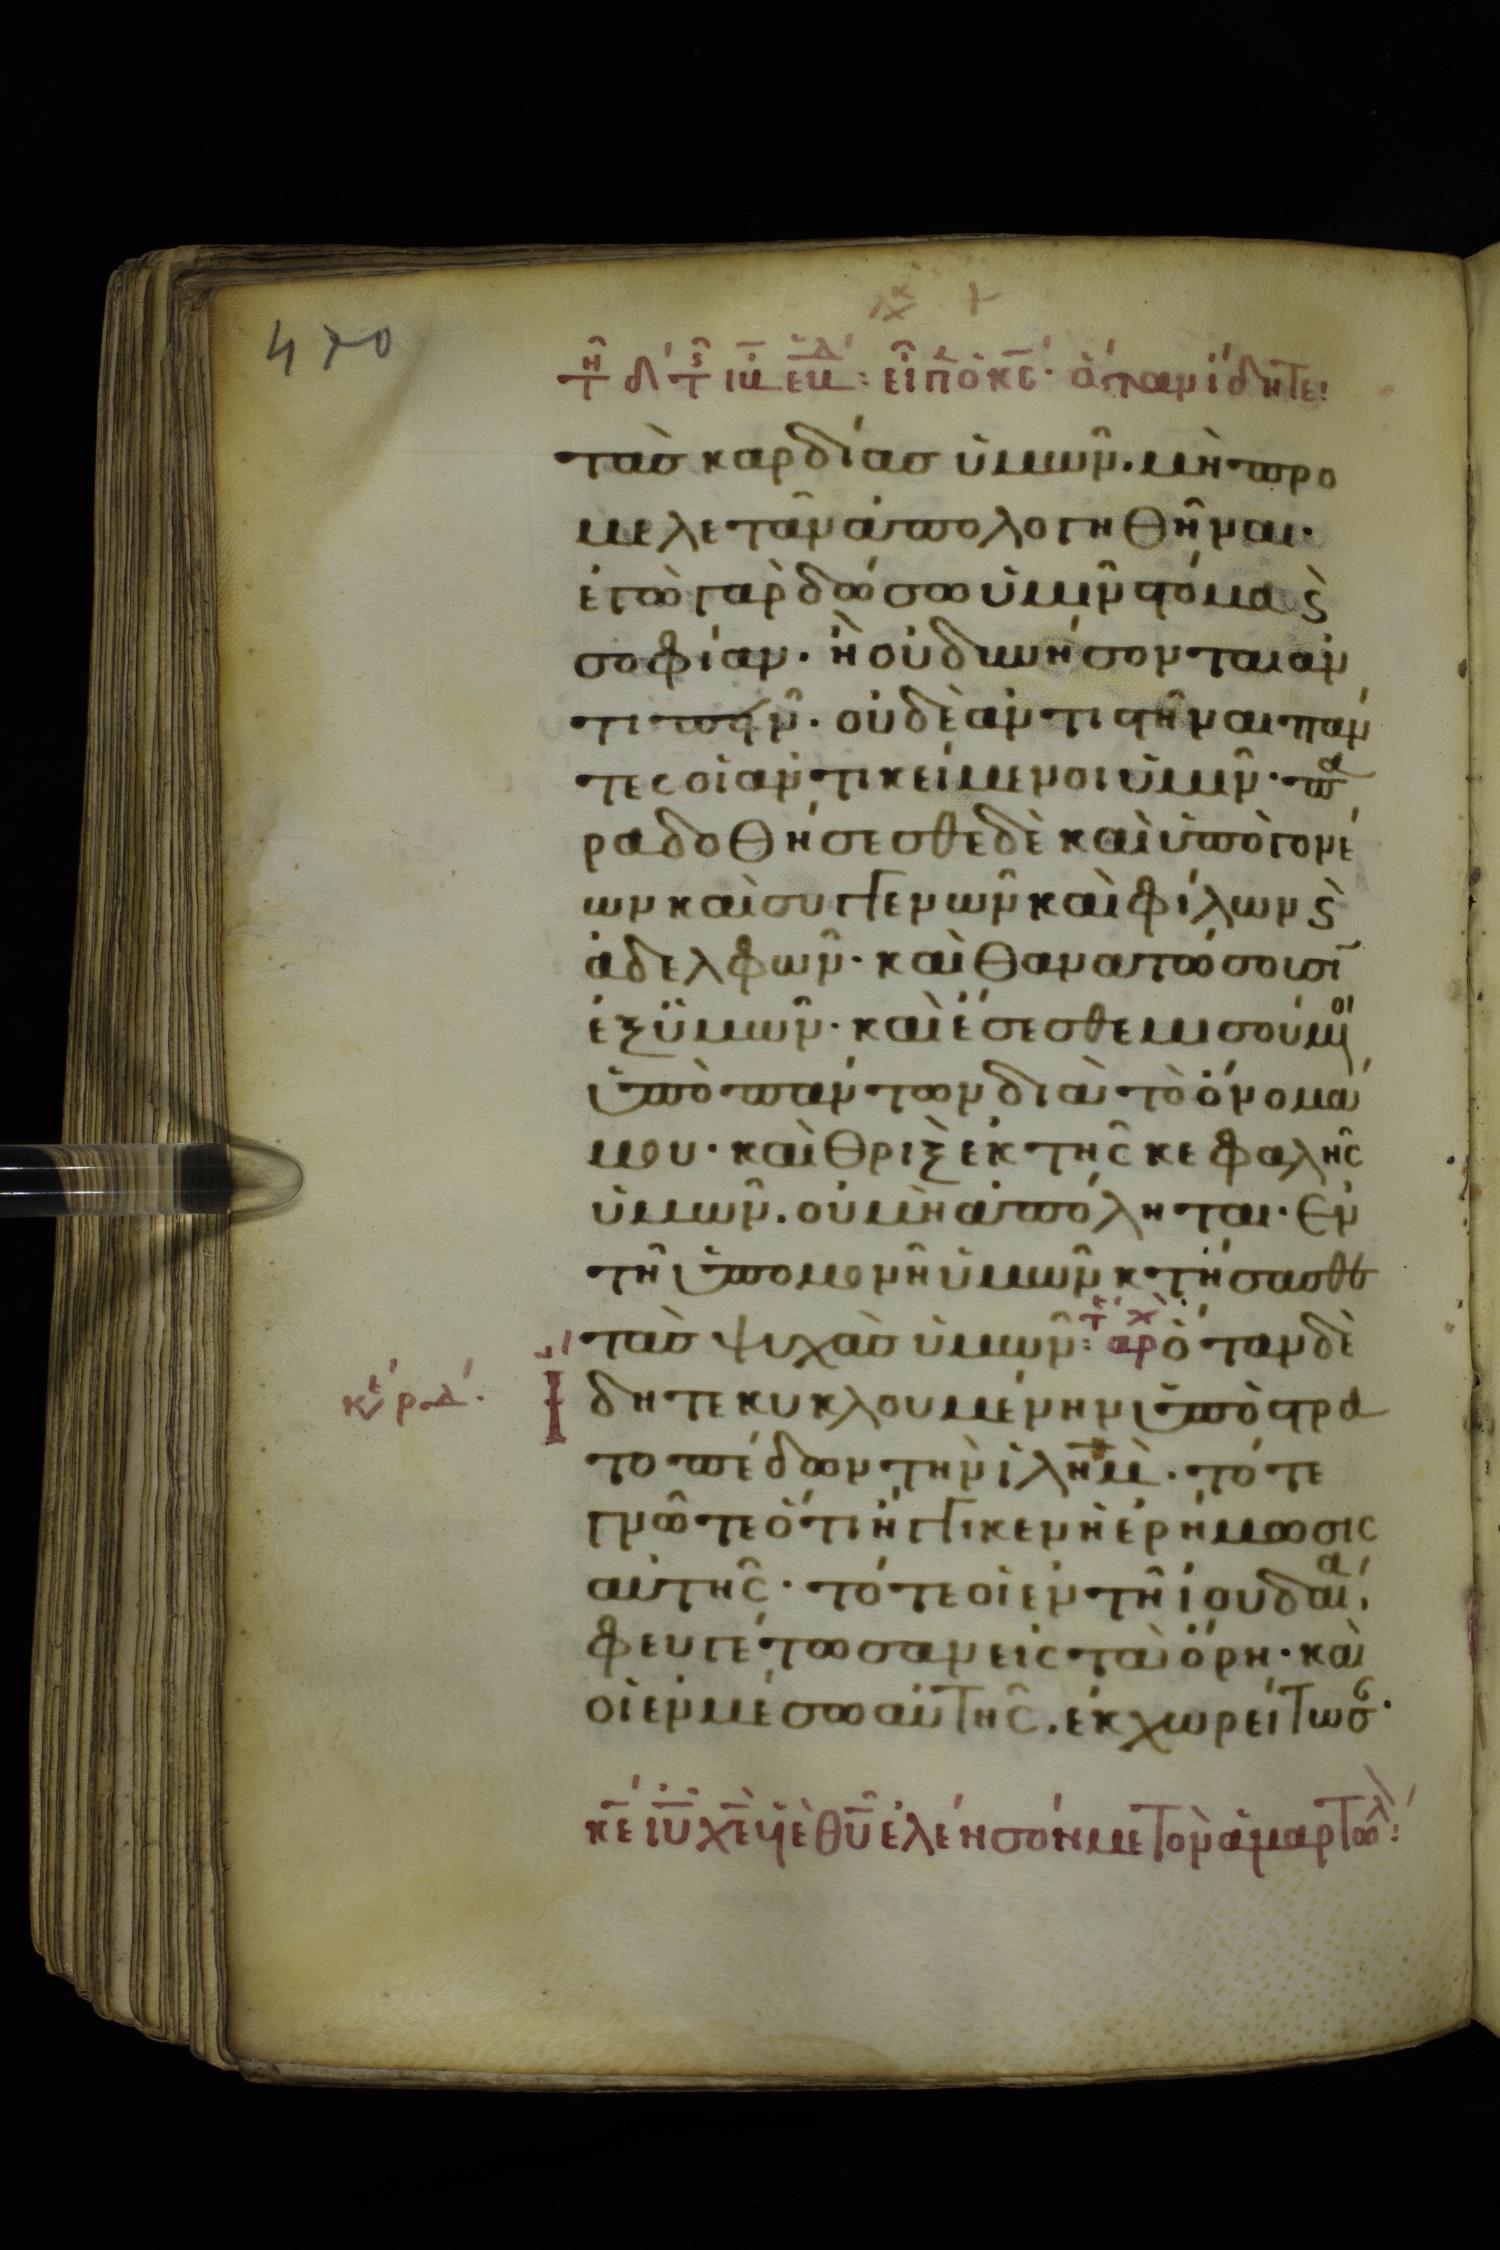 470
τῇ δ τῆς ιβ ἑβδ: εἶπ ὁ κς· ὅταν ἴδητε:
τὰσ καρδίασ ὑμῶν. μὴ προ
μελετᾶν ἀπολογηθῆναι·
ἐγὼ γὰρ δώσω ὑμῖν στόμα ϗ
σοφίαν· ἧ οὐ δυνήσονται ἀν
τιπεῖν· οὐδὲ ἀντιστῆναι πάν
τες οἱ ἀντικείμενοι ὑμῖν· πα
ραδοθήσεσθε δὲ καὶ ὑπὸ γονέ
ων καὶ συγγενῶν καὶ φίλων ϗ
ἀδελφῶν· καὶ θανατώσουσῖ
ἐξ ὑμῶν· καὶ ἔσεσθε μισούμοι
ὑπὸ πάντων διὰ τὸ ὄνομά
μου· καὶ θρὶξ ἐκ τῆς κεφαλῆς
ὑμῶν. οὐ μὴ ἀπόληται· Ἐν
τῆ ὑπομονῆ ὑμῶν κτήσασθε
τὰσ ψυχὰσ ὑμῶν: ἀρχ ὅταν δὲ
Ἴδητε κυκλουμένην ὑπὸ στρα
κυ ρδ.
τοπέδων τὴν ἰλημ̀. τότε
γνῶτε ὅτι ἤγγικεν ἡ ἐρήμωσις
αὐτῆς· τότε οἱ ἐν τῆ ἰουδαία,
φευγέτωσαν εἰς τὰ ὄρη· καὶ
οἱ ἐν μέσω αὐτῆς. ἐκχωρείτωσ·
κε ιυ χε υἱὲ θυ ἐλέησόν με τὸν ἁμαρτωλ: